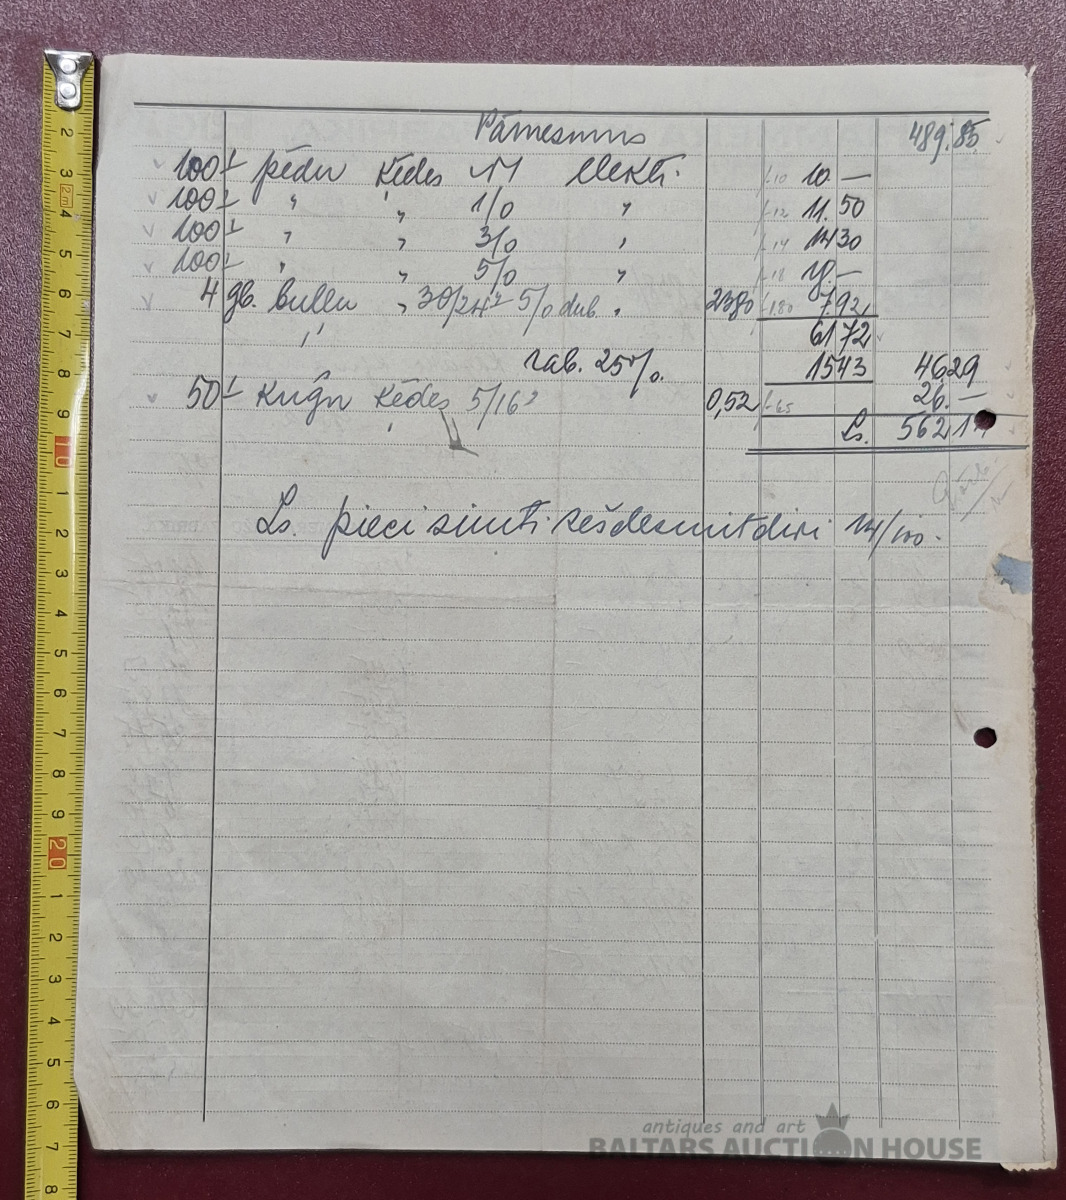 Pārnesums 489.85
100 pēdu ķēdes №1 elektr. 10 —
100 " " 1/0 " 11.50
100 " " 3/0 " 14 30
100 " " 5/0 " 18 —
4 gb. bullu " 30/24" 5/0 dub. " 2380 7.92
61 72
rab. 25% 15 43 46 29
50 ķēdes 5/16" 0,52 26. —
Ls. 562 14
Ls. pieci simti sešdesmitdivi 14/100.
antiques and art
BALTARS AUCTION HOUSE